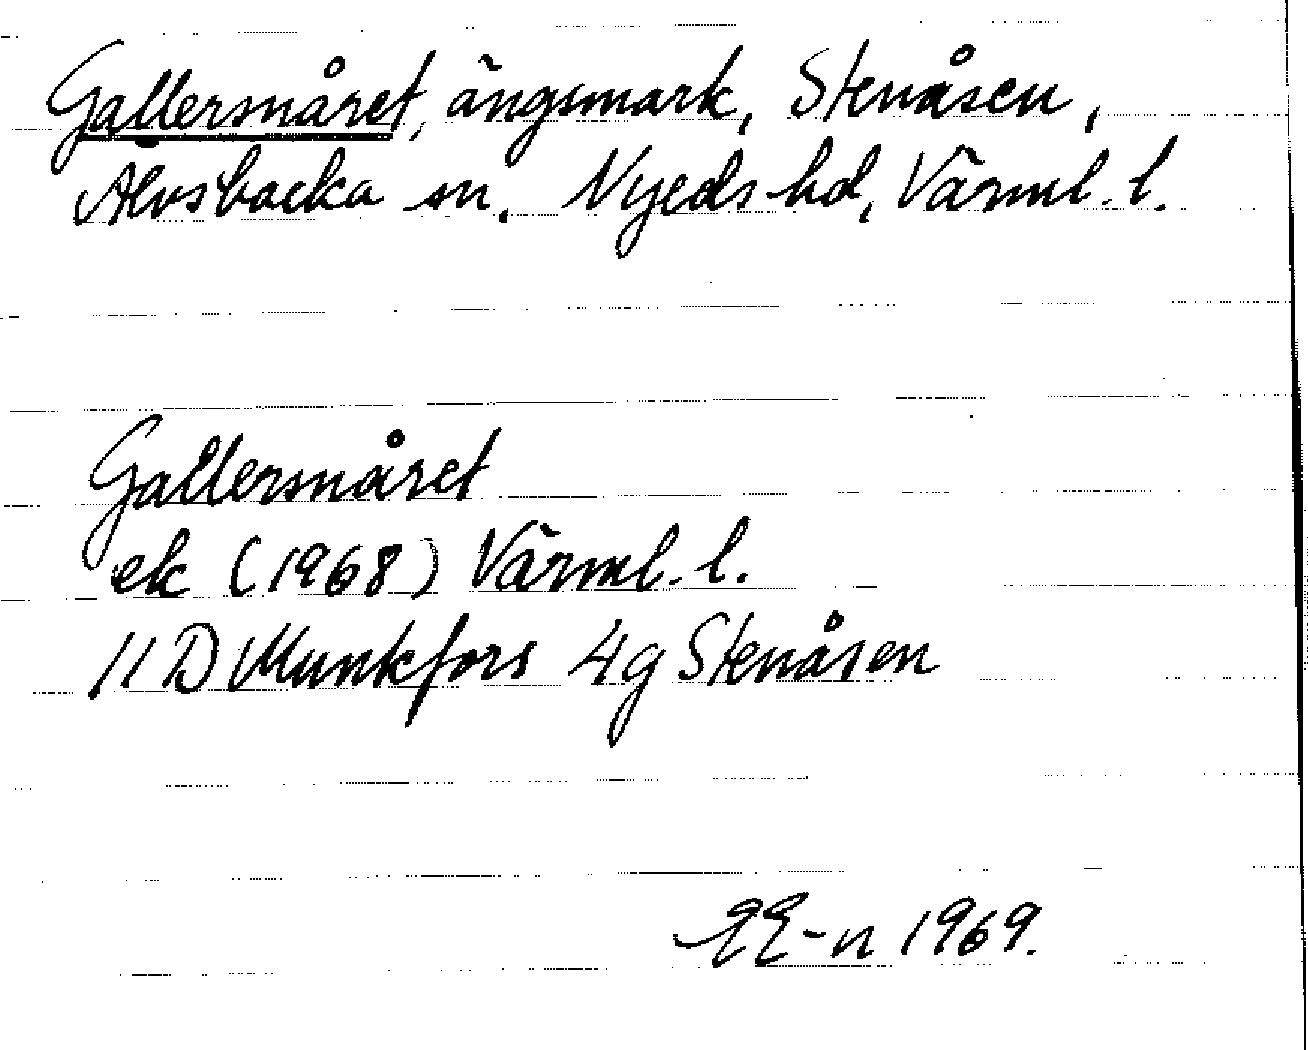 Gallersmåret, ängsmark, Stenåsen,
Älvsbacka sn. Nyeds hd, Värml. l.
Gallersmåret
ek (1968) Värml. l.
11 D Munkfors 4g Stenåsen
1969.